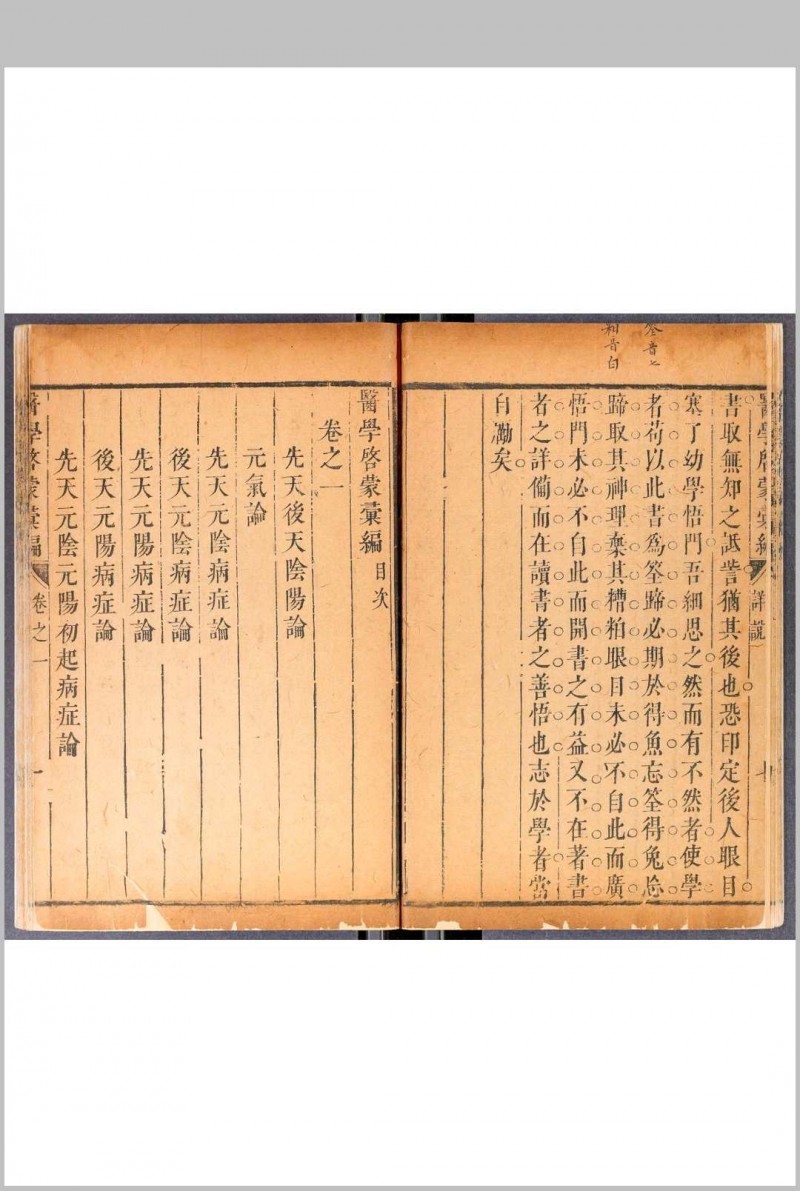 筌音七
粕音白
醫學啓蒙彙編 詳說
書取無知之詆訾猶其後也恐印定後人眼目
塞了幼學悟門吾細思之然而有不然者使學
者苟以此書爲筌蹄必期於得魚忘筌得兔忘
蹄取其神理棄其糟粕眼目未必不自此而廣
悟門未必不自此而開書之有益又不在著書
者之詳備而在讀書者之善悟也志於學者當
自勵矣
醫學啓蒙彙編 目次
卷之一
先天後天陰陽論
元氣論
先天元陰病症論
後天元陰病症論
先天元陽病症論
後天元陽病症論
先天元陰元陽初起病症論
醫學啓蒙彙編 卷之一 一